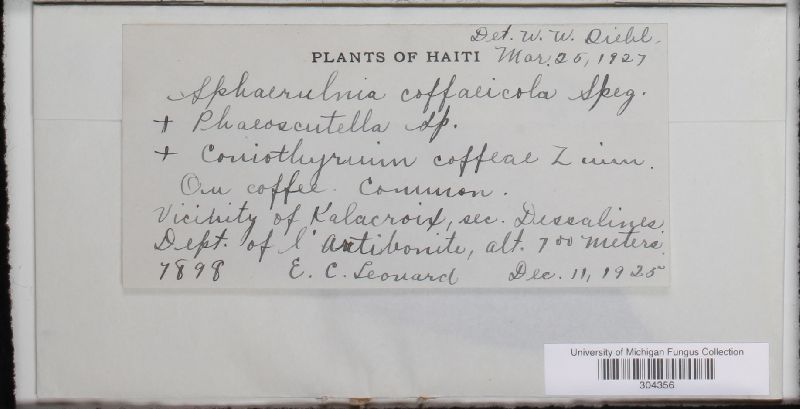 Det. W. W. Diehl.
PLANTS OF HAITI Mar. 25, 1927
Sphaerulnia coffaeicola Speg.
+ Phaeoscutella sp.
+ Coniothyrium coffeae Zimm.
On coffee. Common.
Vicinity of Kalacroix, sec. Dessalines.
Dept. of l'Artibonite, alt. 700 meters.
7898 E. C. Leonard Dec. 11, 1925
University of Michigan Fungus Collection
304356